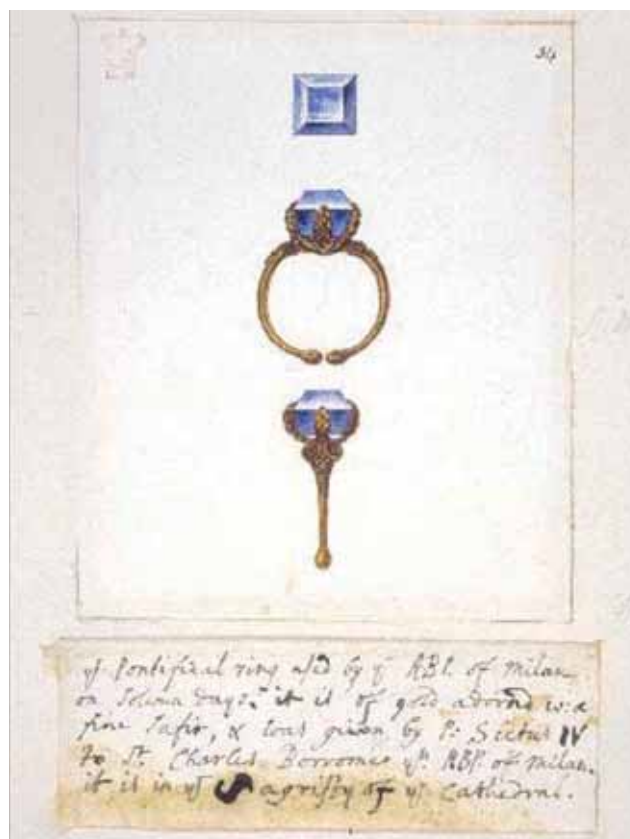 34
ye Pontifical ring used by ye ABP. of Milan
on Solemn days. it is of gold adorned w: a
fine Safir, & was given by P: Sixtus IV
to St. Charles Borromeo ye ABP. of Milan.
it is in ye Sagristy of ye Cathedral.